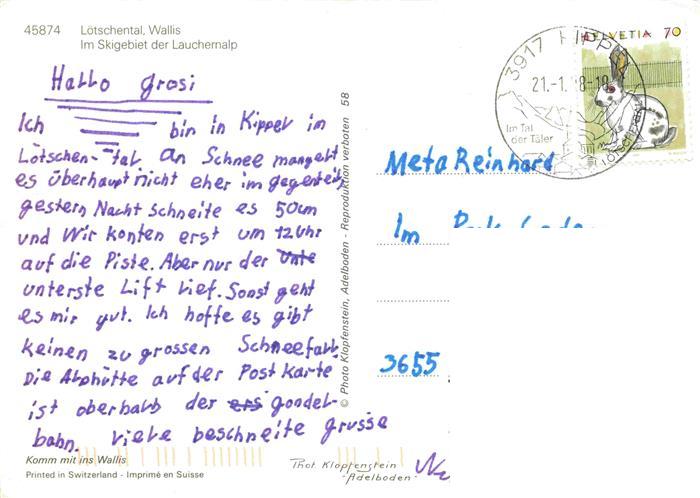 45874 Lötschental, Wallis
Im Skigebiet der Lauchernalp
Hallo grosi
Ich bin in Kippel im
Lötschen-tal. An Schnee mangelt
es überhaupt nicht eher im gegenteil,
gestern Nacht schneite es 50cm
und Wir konten erst um 12 Uhr
auf die Piste. Aber nur der Unte
unterste Lift lief. Sonst geht
es mir gut. Ich hoffe es gibt
keinen zu grossen Schneefall.
Die Alphütte auf der Postkarte
ist oberhalb der ers gondel-
bahn. viele beschneite grüsse
Komm mit ins Wallis
Printed in Switzerland - Imprimé en Suisse
© Photo Klopfenstein, Adelboden - Reproduktion verboten 58
Phot. Klopfenstein
-Adelboden-
HELVETIA 70
3917 KIPP
21.-1.
Im Tal
der Täler
Meta Reinhard
Im
3655